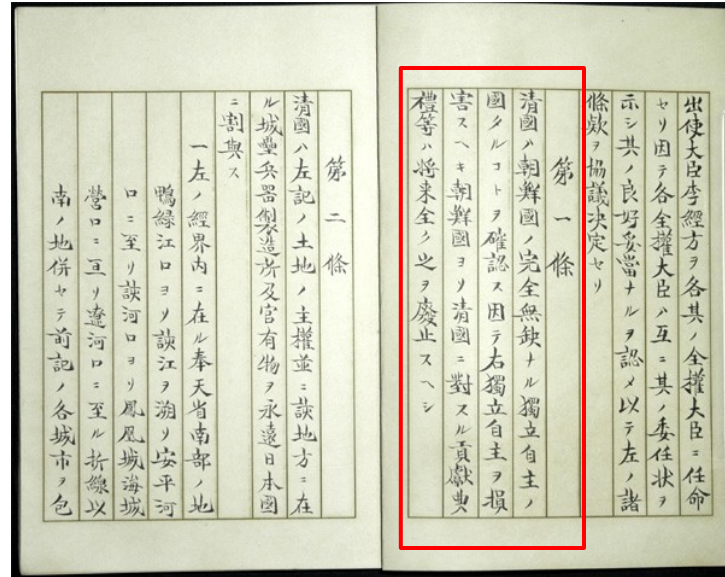 出使大臣李經方ヲ各其ノ全權大臣ニ任命
セリ因テ各全權大臣ハ互ニ其ノ委任狀ヲ
示シ其ノ良好妥當ナルヲ認メ以テ左ノ諸
條款ヲ協議決定セリ
第一條
淸國ハ朝鮮國ノ完全無缺ナル獨立自主ノ
國タルコトヲ確認ス因テ右獨立自主ヲ損
害スヘキ朝鮮國ヨリ淸國ニ對スル貢獻典
禮等ハ將来全ク之ヲ廢止スヘシ
第二條
淸國ハ左記ノ土地ノ主權並ニ該地方ニ在
ル城壘兵器製造所及官有物ヲ永遠日本國
ニ割與ス
一左ノ經界内ニ在ル奉天省南部ノ地
鴨緑江口ヨリ該江ヲ溯リ安平河
口ニ至リ該河口ヨリ鳳凰城海城
營口ニ亘リ遼河口ニ至ル折線以
南ノ地併セテ前記ノ各城市ヲ包